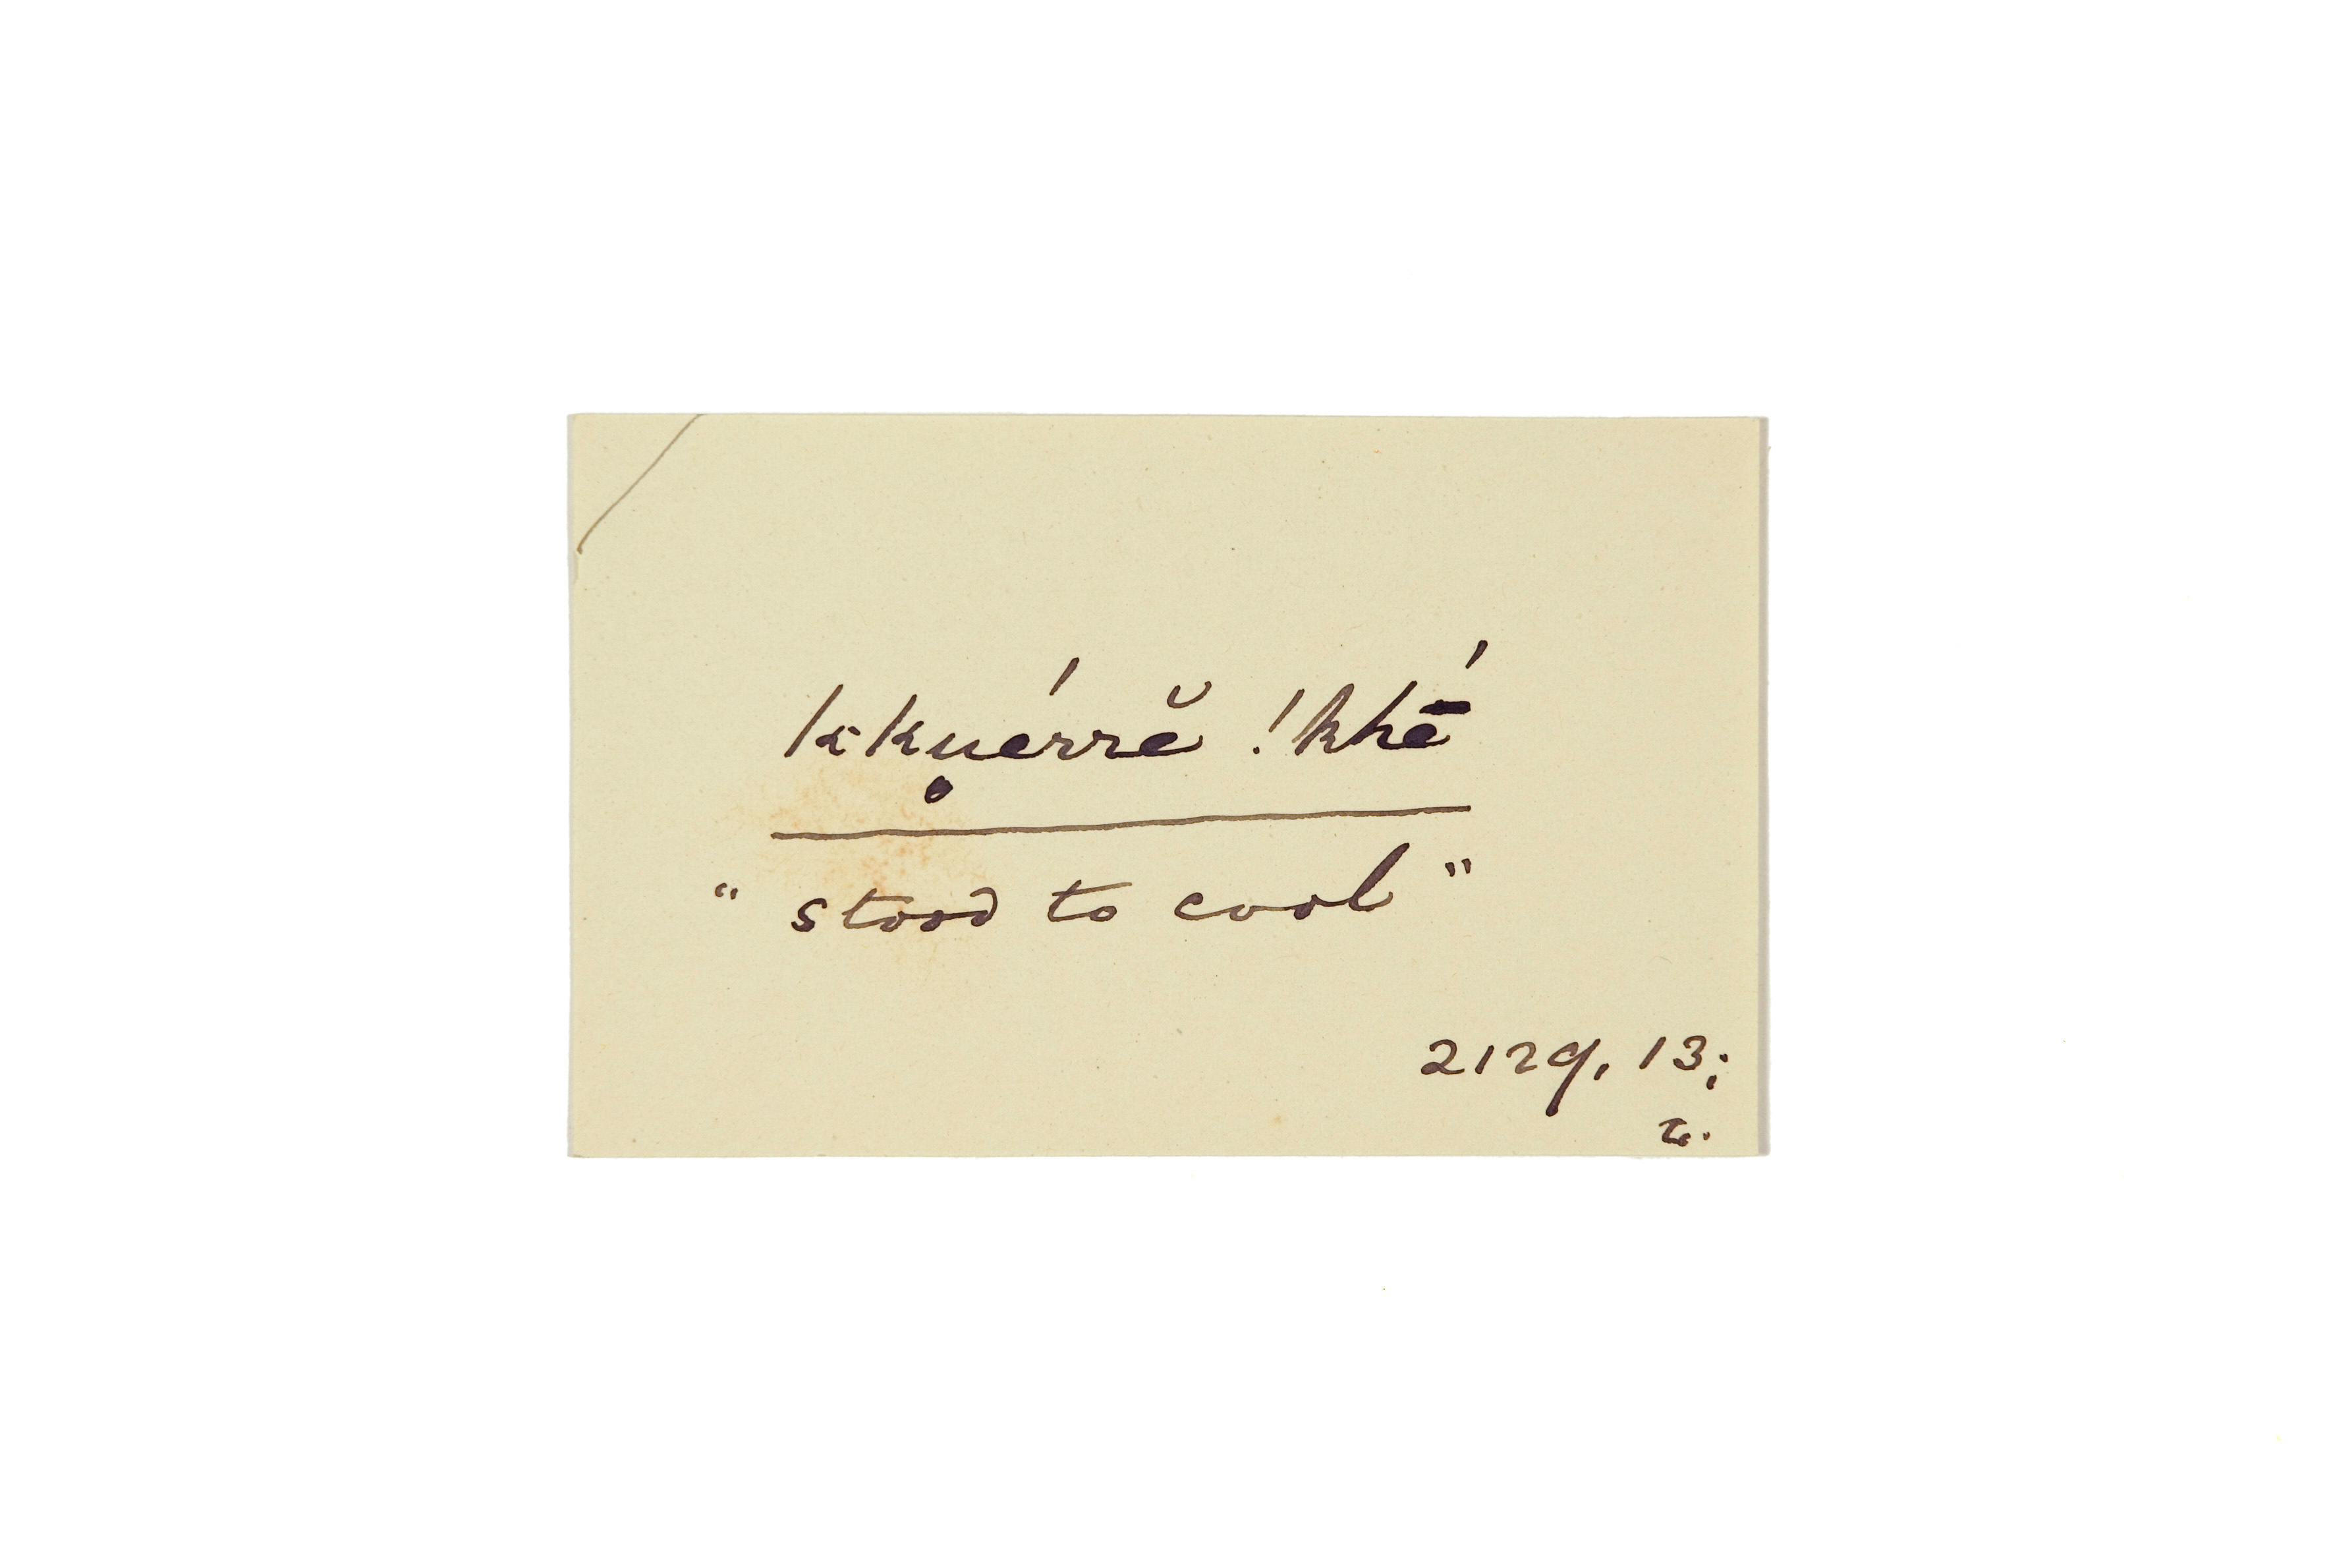 kkụérrĕ !khḗ
“ stood to cool ”
2129, 13;